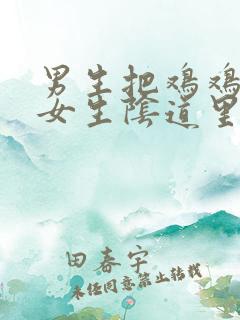 男生把鸡鸡
女生陰道里
田春宇
未经同意禁止转载